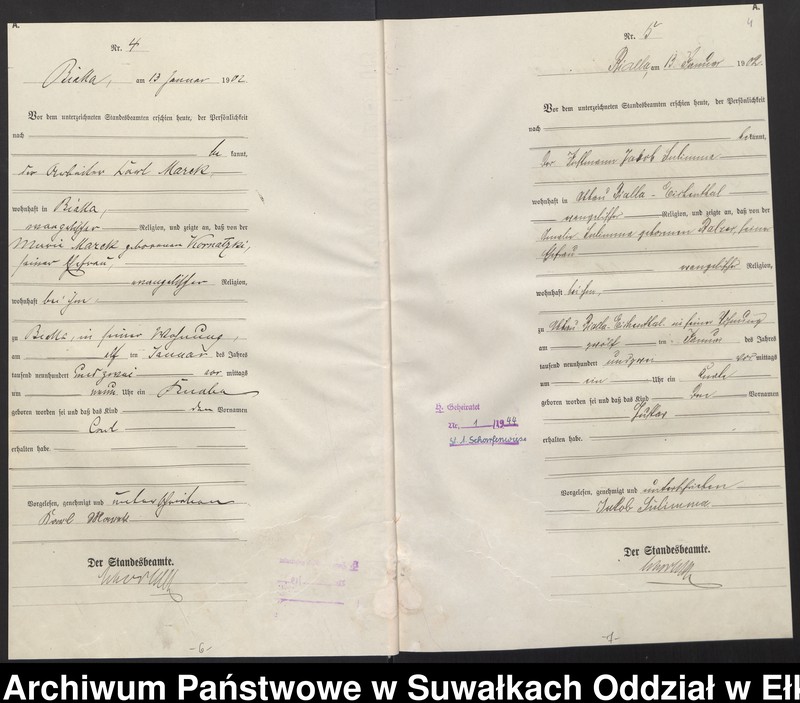 A.
Nr. 4
Bialla, am 13 Januar 1902
Vor dem unterzeichneten Standesbeamten erschien heute, der Persönlichkeit
nach
be kannt,
der Arbeiter Karl Marek
wohnhaft in Bialla,
evangelischer Religion, und zeigte an, daß von der
Marie Marek geborenen Kornatzki,
seiner Ehefrau,
evangelischer Religion,
wohnhaft bei ihm
zu Bialla, in seiner Wohnung,
am elf ten Januar des Jahres
tausend neunhundert und zwei vor mittags
um neun Uhr ein Knabe
geboren worden sei und daß das Kind den Vornamen
erhalten habe.
Vorgelesen, genehmigt und unterschrieben
Karl Marek
Der Standesbeamte.
-6-
A.
4
Nr. 5
Bialla, am 13 Januar 1902.
Vor dem unterzeichneten Standesbeamten erschien heute, der Persönlichkeit
nach
bekannt,
der Jakob Sulimma
wohnhaft in Abbau Bialla - Eichenthal
evangelischer Religion, und zeigte an, daß von der
Sulimma geborenen Balzer, seiner
Ehefrau
evangelischer Religion,
wohnhaft bei ihm,
zu Abbau Bialla-Eichenthal in seiner Wohnung
am zwölf ten Januar des Jahres
tausend neunhundert und zwei vor mittags
um ein Uhr ein Knabe
geboren worden sei und daß das Kind den Vornamen
Gustav
erhalten habe.
Vorgelesen, genehmigt und unterschrieben
Jakob Sulimma
Der Standesbeamte.
-7-
Geheiratet
Nr. 1 /1944
Archiwum Państwowe w Suwałkach Oddział w Ełk